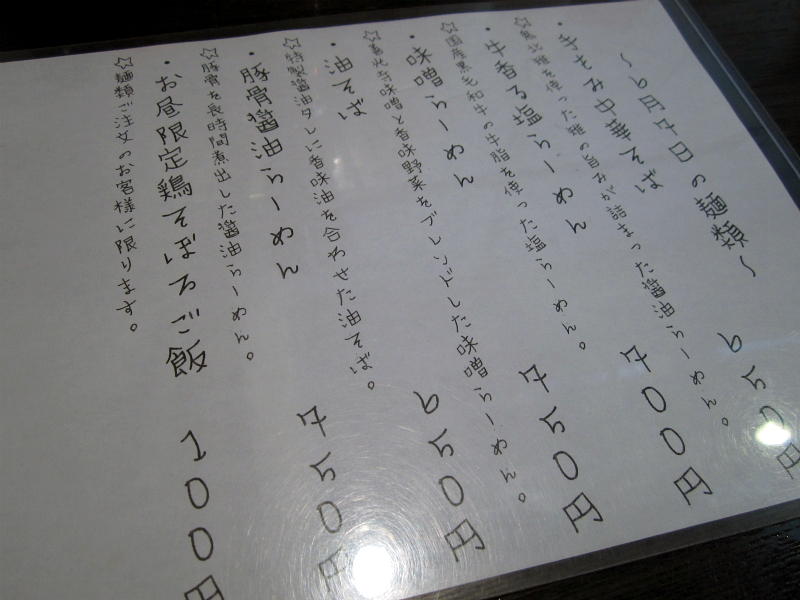 〜6月7日の麺類〜
・手もみ中華そば 650円
☆を使った の旨みが詰まった醤油らーめん。
・牛香る塩らーめん 700円
☆国産黒毛和牛の牛脂を使った塩らーめん。
・味噌らーめん 750円
☆善光寺味噌と香味野菜をブレンドした味噌らーめん。
・油そば 650円
☆特製醤油タレに香味油を合わせた油そば。
・豚骨醤油らーめん 750円
☆豚骨を長時間煮出した醤油らーめん。
・お昼限定鶏そぼろご飯 100円
☆麺類ご注文のお客様に限ります。